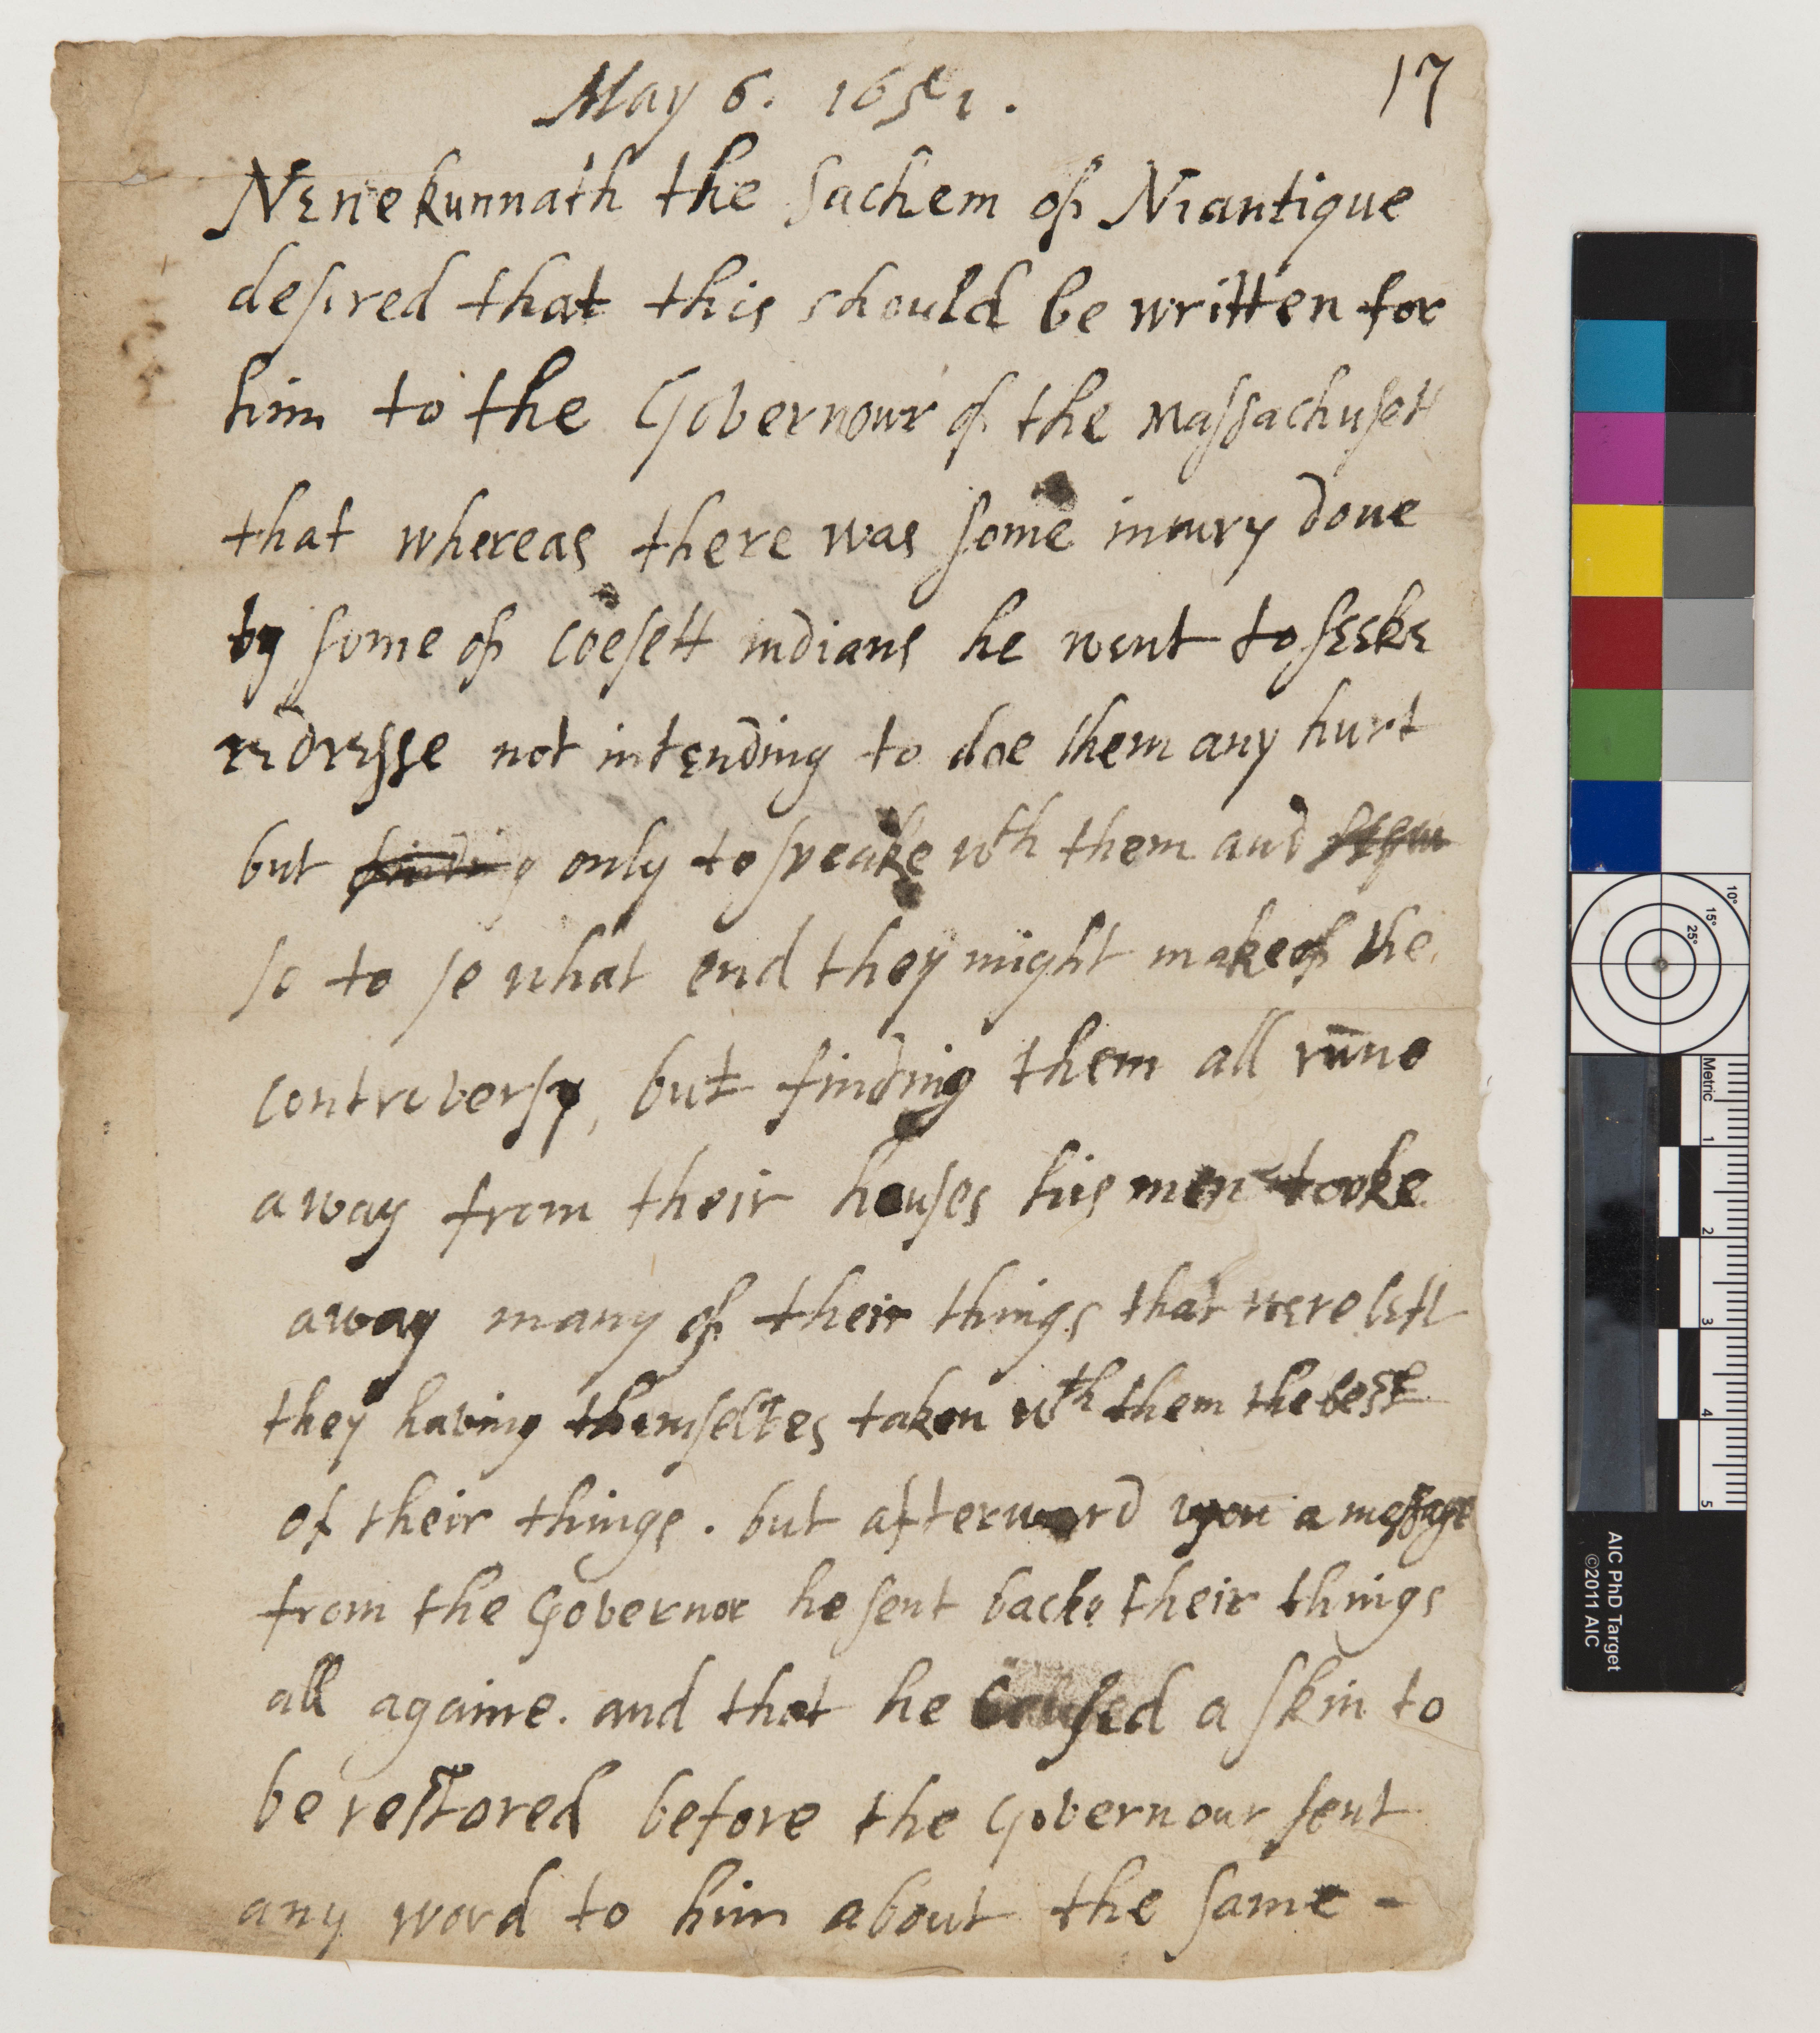 May 6. 1651.
17
Nenekunnath the sachem of Niantique
desired that this should be written for
him to the Governour of the massachusett
that whereas there was some iniury done
by some of coesett indians he went to seeke
redresse not intending to doe them any hurt
but finding only to speake wth them and
so to se what end they might make of the
controversy, but finding them all rūne
away from their houses his men tooke
away many of their things that were left
they having themselves taken wth them the best
of their things. but afterward upon a message
from the Governor he sent backe their things
all againe. and that he caused a skin to
be restored before the Governour sent
any word to him about the same -
10°
15°
25°
Metric
1
2
3
4
5
AIC PhD Target
©2011 AIC